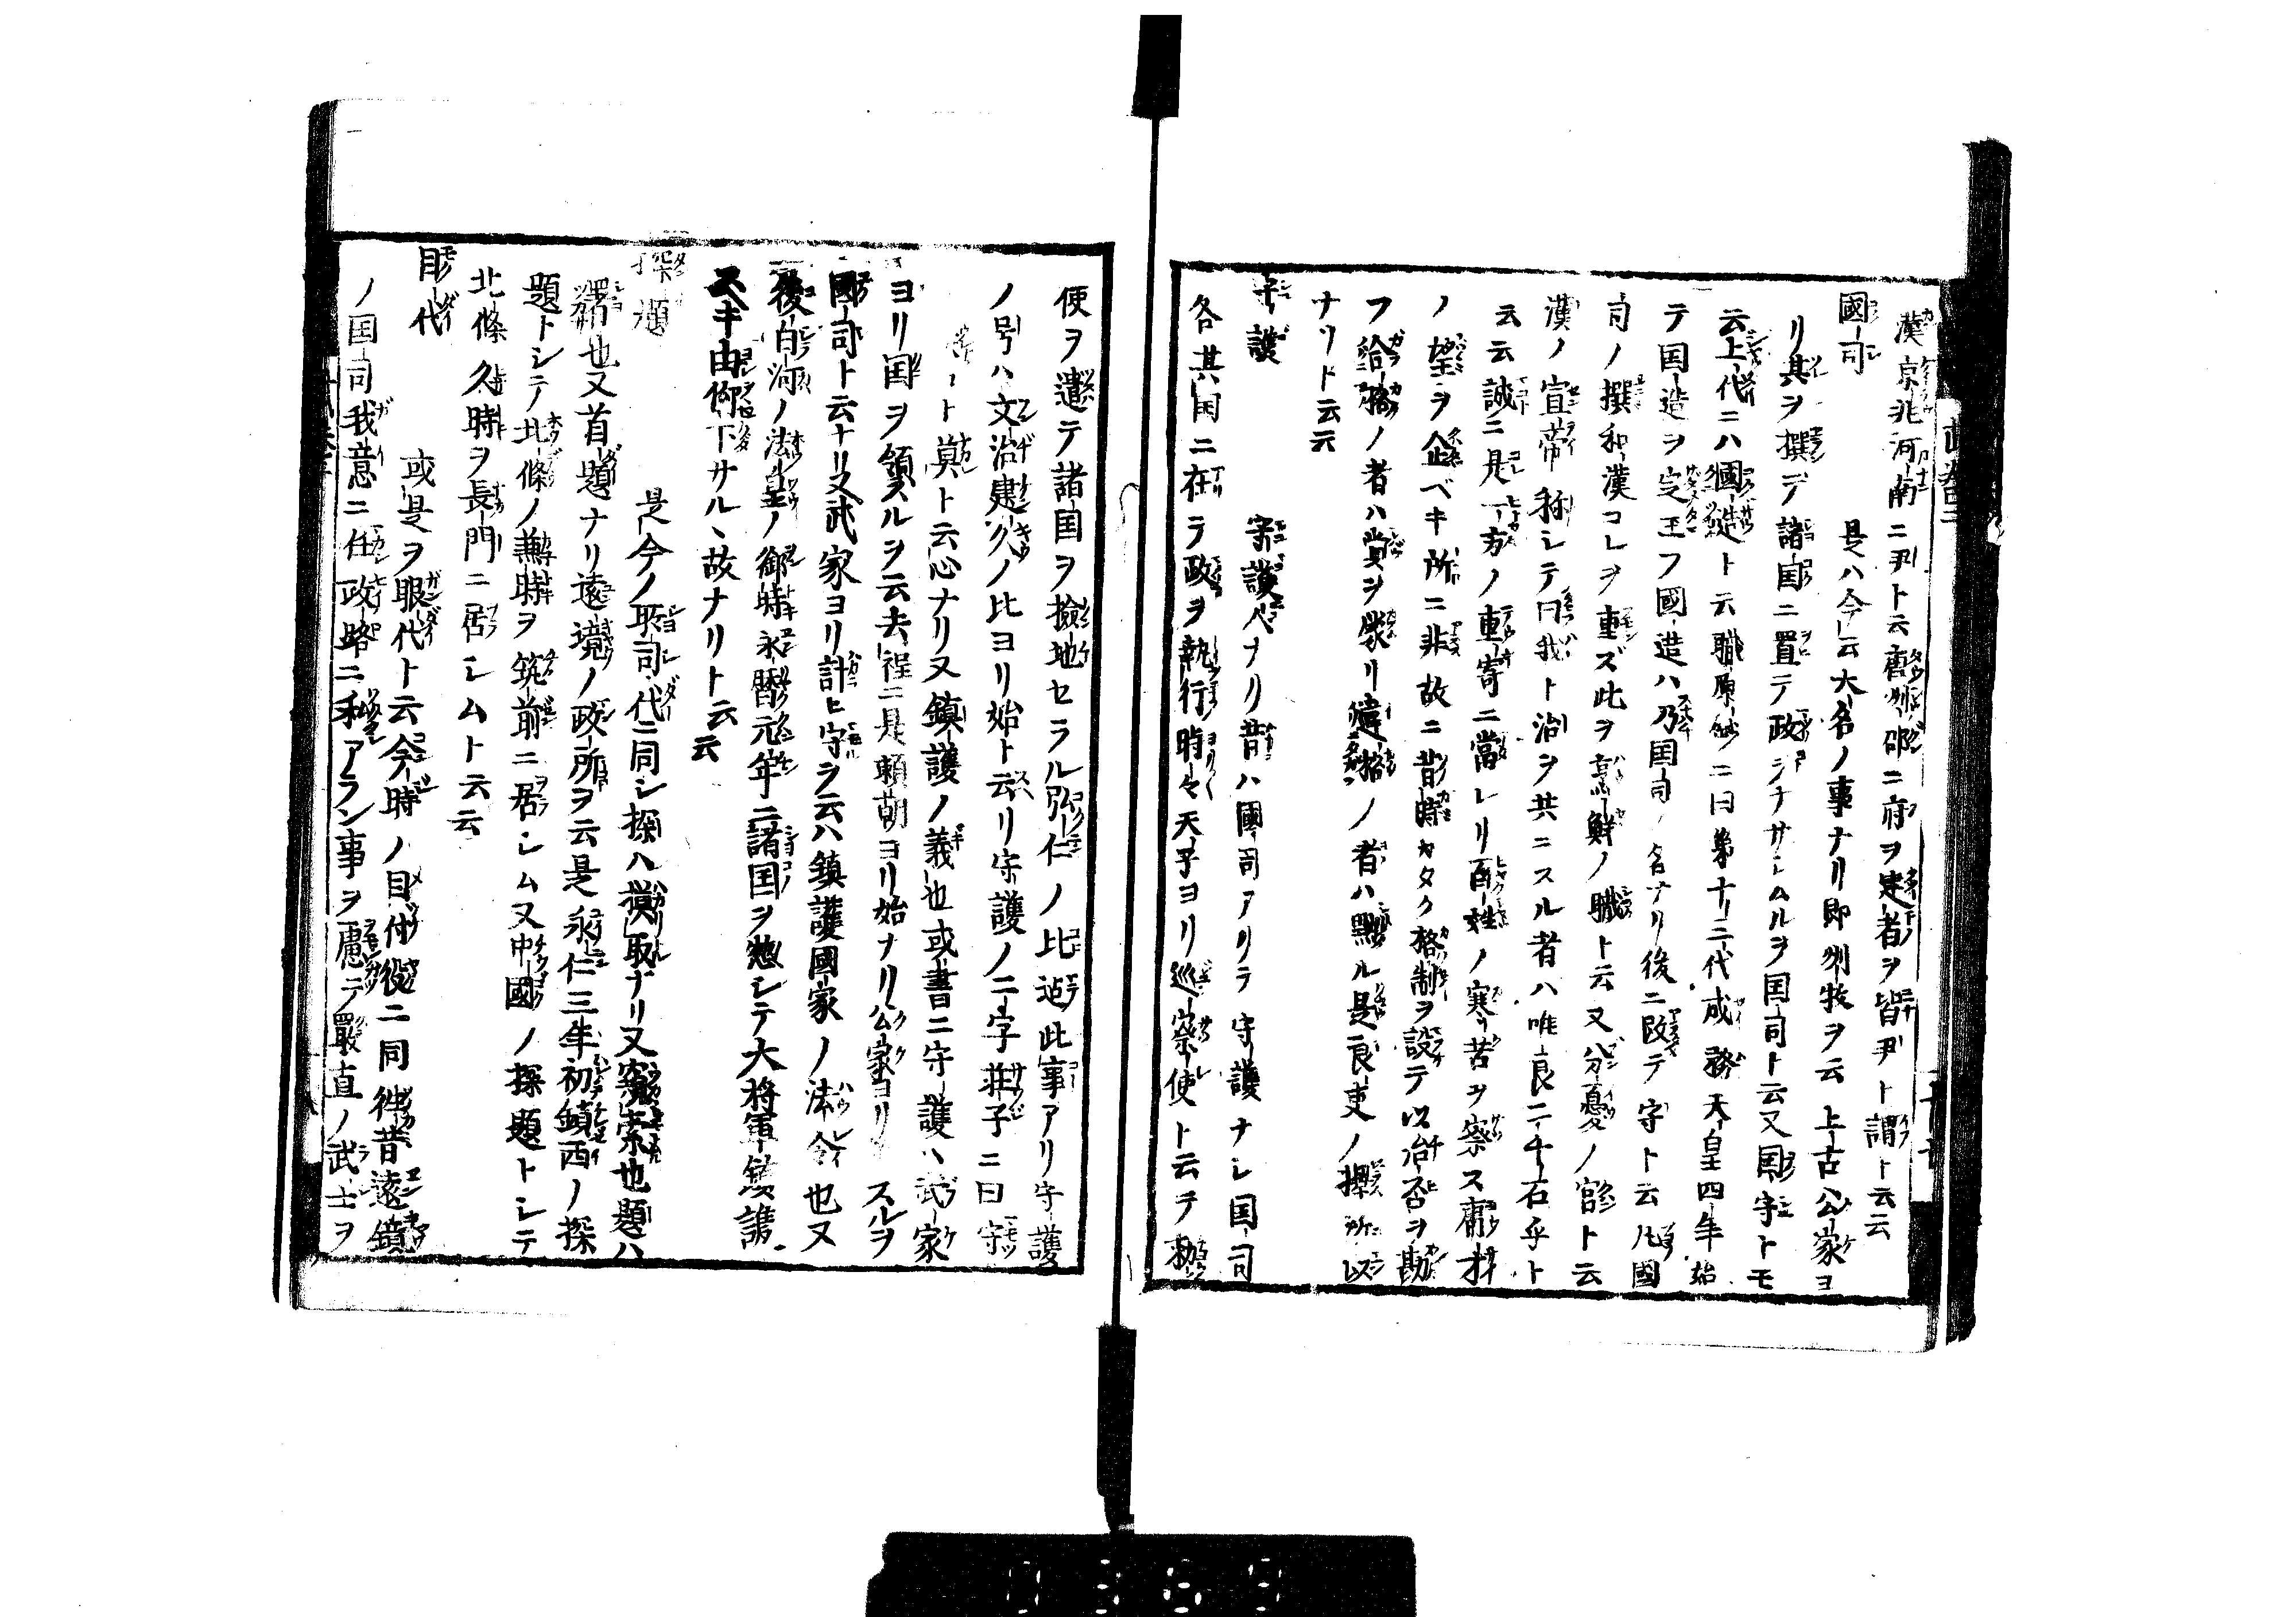 漢京兆河南ニ尹ト云唐ノ州郡ニ府ヲ建者ヲ皆尹ト謂ト云云
國司　是ハ今云大名ノ事ナリ即州牧ヲ云上古公家ヨ
リ其ヲ撰デ諸国ニ置テ政ヲナサシムルヲ国司ト云又国守トモ
云上代ニハ國造ト云職原鈔ニ曰第十二代成務天皇四年始
テ国造ヲ定玉フ國造ハ乃国司ノ名ナリ後ニ改テ守ト云凡國
司ノ撰和漢コレヲ重ズ此ヲ烹鮮ノ職ト云又分憂ノ官ト云
漢ノ宣帝称シテ曰我ト治ヲ共ニスル者ハ唯良二千石乎ト
云云誠ニ是一方ノ重寄ニ當レリ百姓ノ寒苦ヲ察ス庸才
ノ望ヲ企ベキ所ニ非故ニ昔時カタク格制ヲ設テ以治否ヲ勘
フ給格ノ者ハ賞ヲ蒙リ違格ノ者ハ黜ル是良吏ノ撰所以
ナリト云云
守護　守護人ナリ昔ハ國司アリテ守護ナシ国司
各其国ニ在テ政ヲ執行時々天子ヨリ巡察使ト云テ
使ヲ遣テ諸国ヲ撿地セラル弘仁ノ比迠此事アリ守護
ノ号ハ文治建久ノ比ヨリ始ト云リ守護ノ二字荘子ニ曰守
ト莫ト云心ナリ又鎮護ノ義也或書ニ守護ハ武家
ヨリ国ヲ領スルヲ云去程ニ是頼朝ヨリ始ナリ公家ヨリスルヲ
國司ト云ナリ又武家ヨリ計ヒ守ヲ云ハ鎮護國家ノ法令也又
後白河ノ法皇ノ御時永暦元年ニ諸国ヲ惣シテ大将軍鎮護
スベキ由仰下サル、故ナリト云云
探題　是今ノ所司代ニ同シ探ハ摸取ナリ又窺索也題ハ
額也又首題ナリ遠境ノ政所ヲ云是永仁三年初鎮西ノ探
題トシテ北條ノ兼時ヲ筑前ニ居シム又中國ノ探題トシテ
北條久時ヲ長門ニ居シムト云云
目代　或是ヲ眼代ト云今時ノ目付役ニ同徃昔遠境
ノ国司我意ニ任政路ニ私アラン事ヲ慮テ嚴直ノ武士ヲ